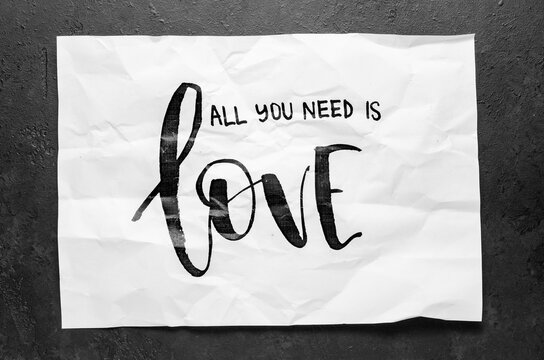 ALL YOU NEED IS
love